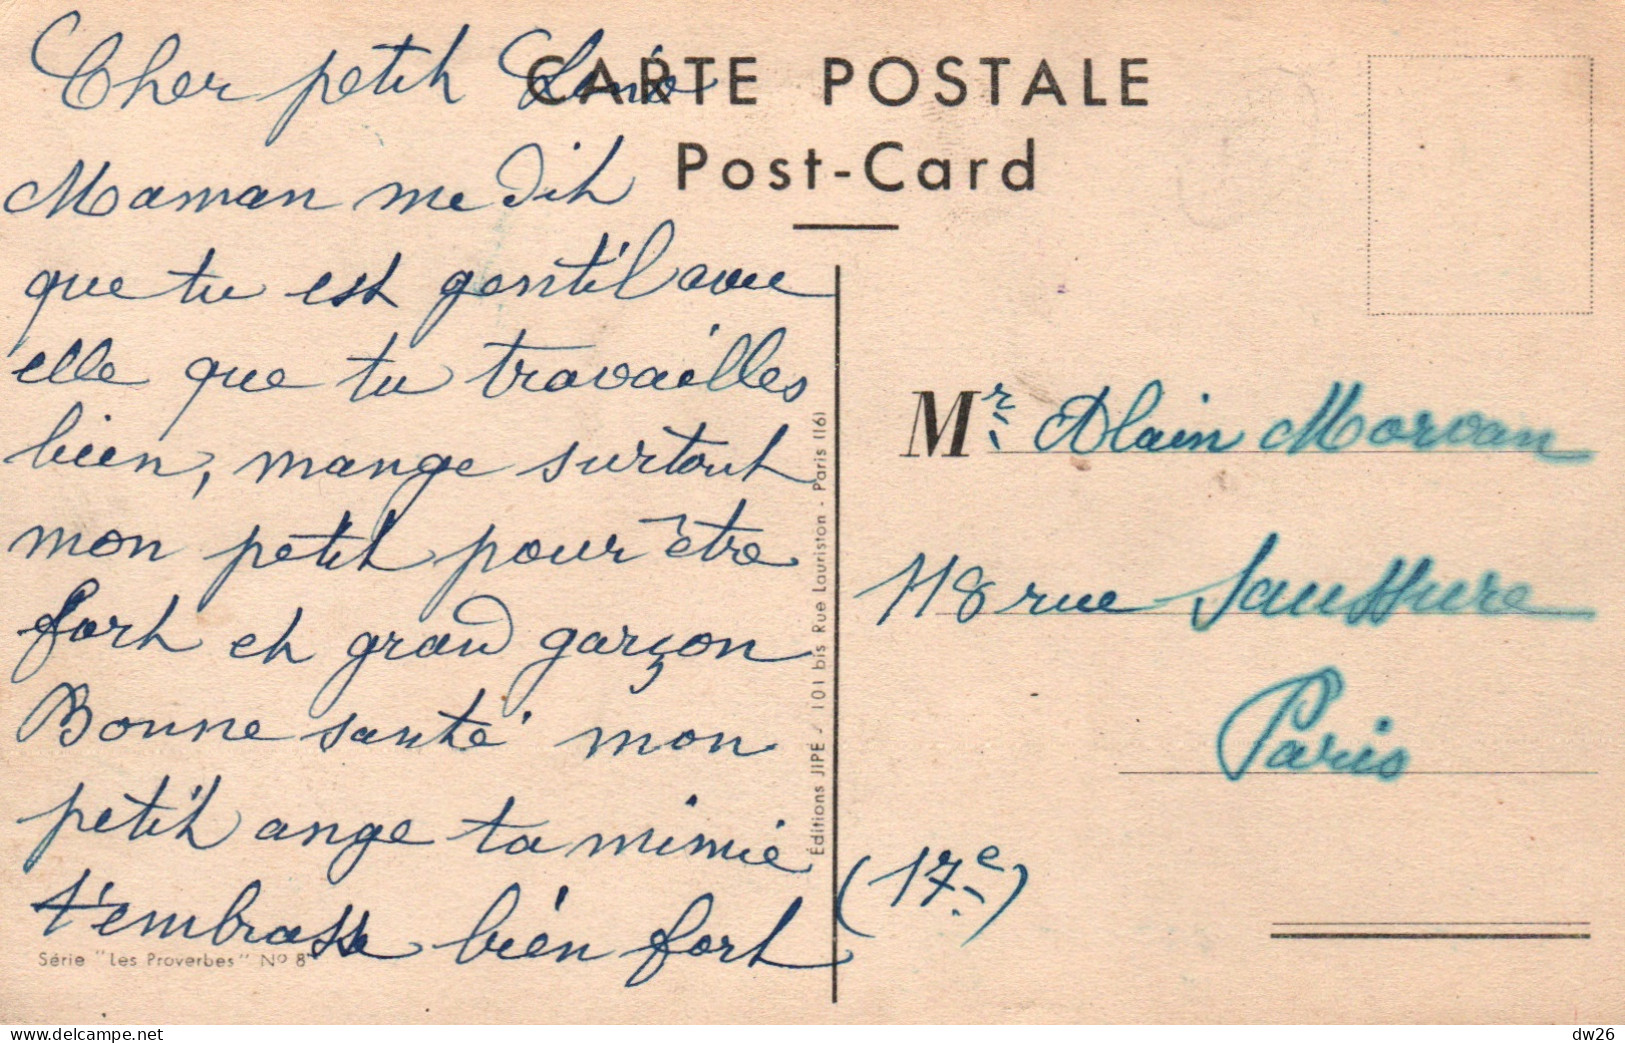 CARTE POSTALE
Post-Card
Cher petit
Maman me dit
que tu est gentil avec
elle que tu travailles
bien, mange surtout
mon petit pour être
fort et grand garçon
Bonne santé mon
petit ange ta mimie
t'embrasse bien fort
Série "Les Proverbes" No 8
Éditions JIPE - 101 bis Rue Lauriston - Paris (16)
Mr. Alain Morvan
118 rue Saussure
Paris
(17e)
dw26